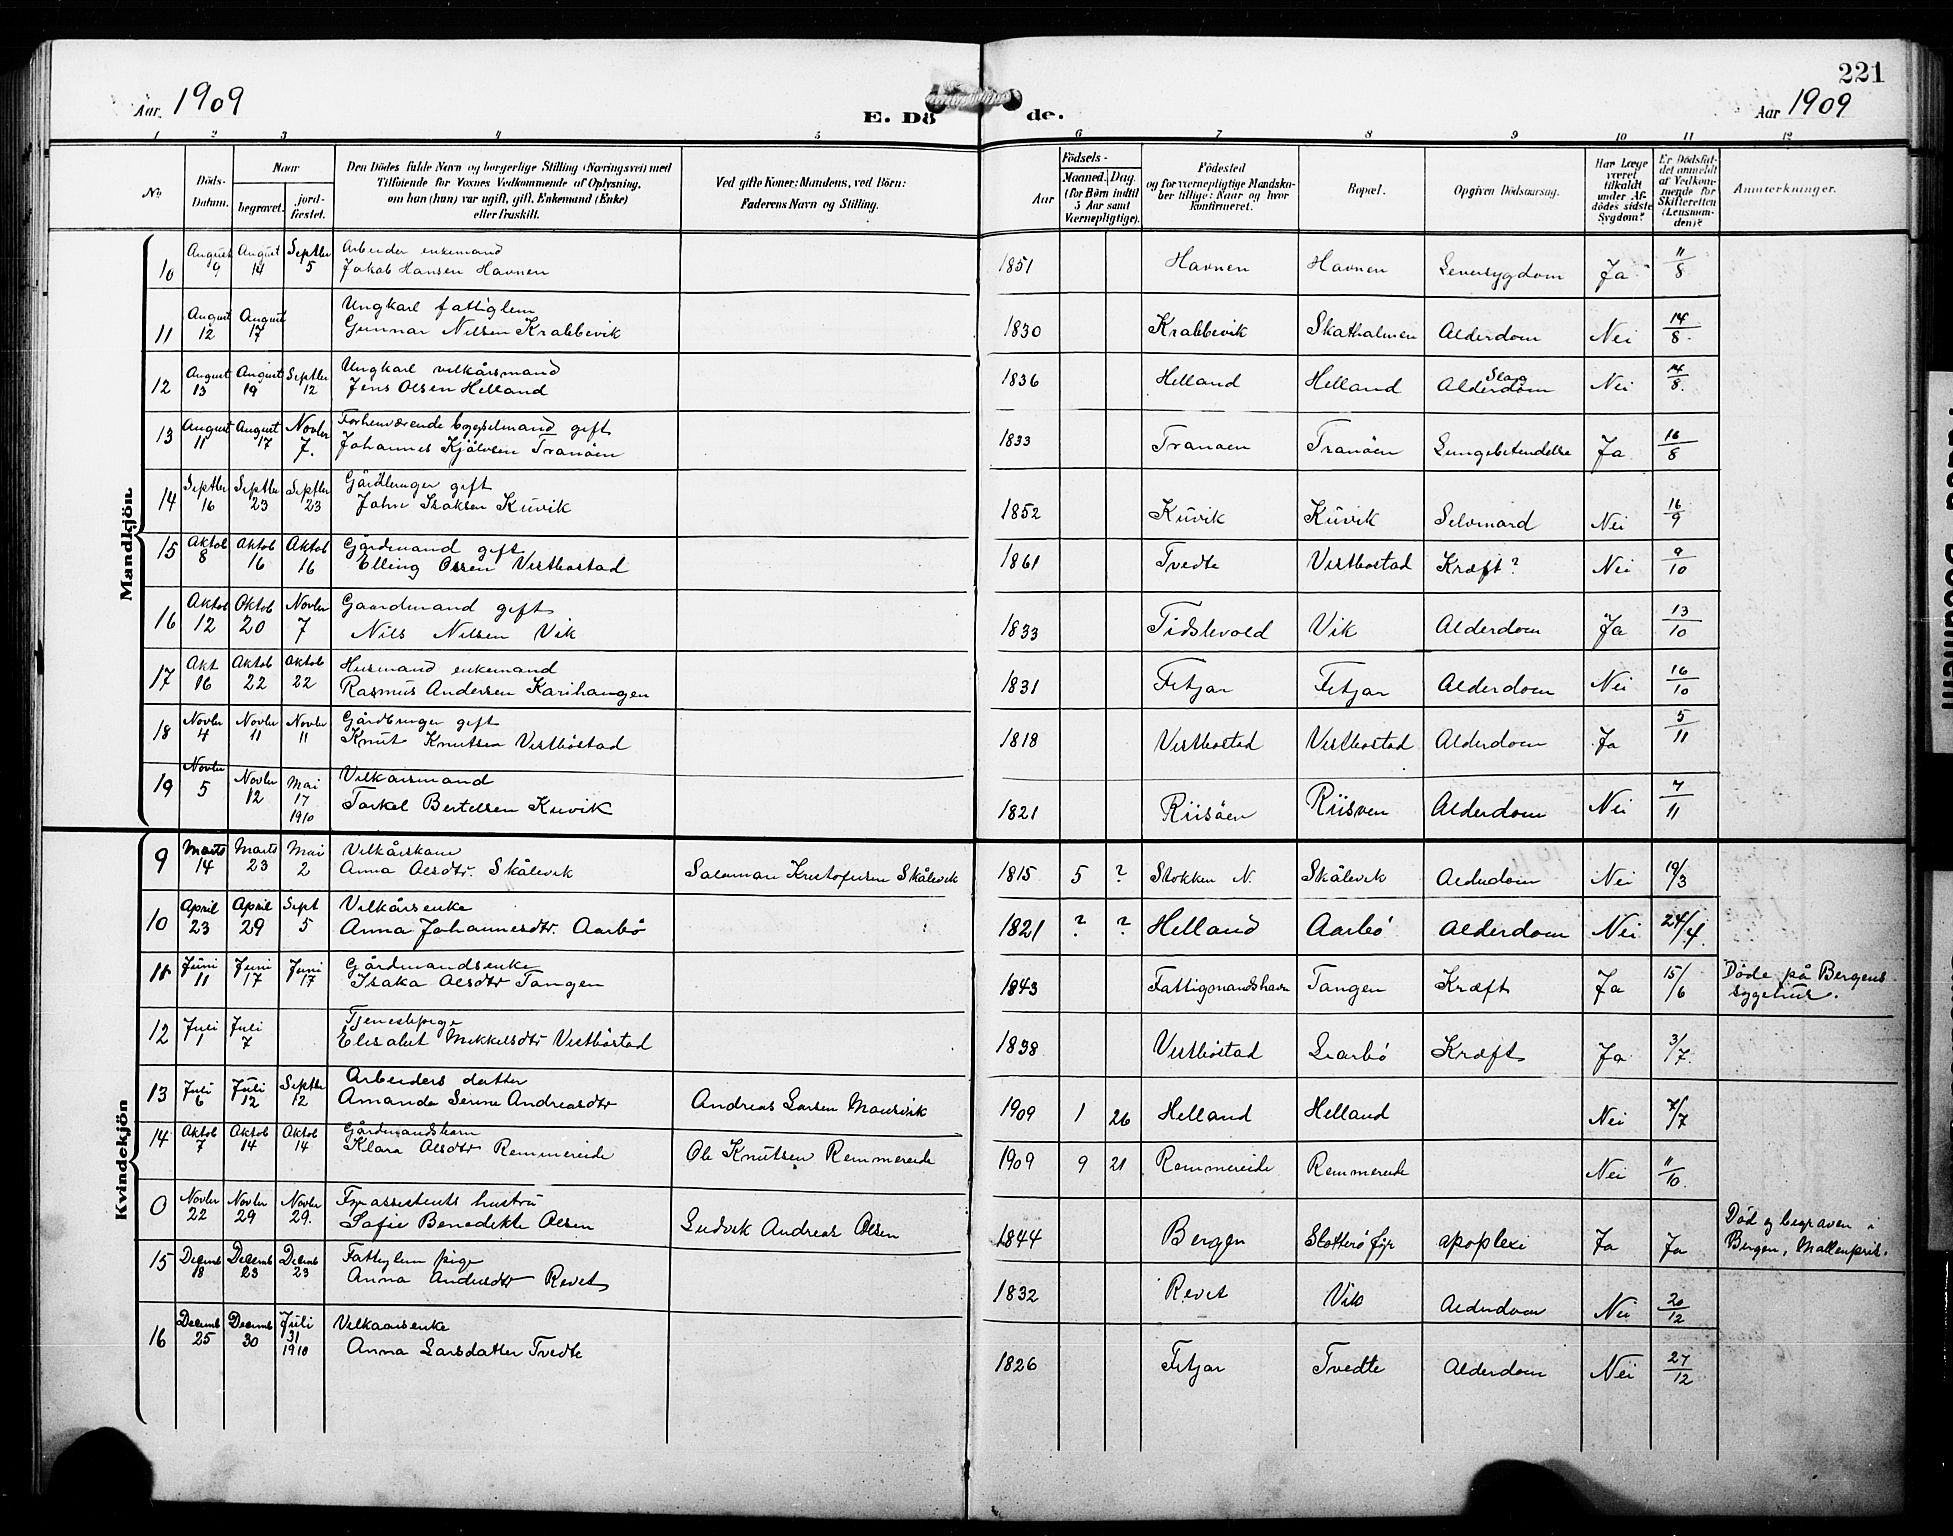 221
Aar 1909
E. Dö de.
Aar 1909
1 2 3 4 5 6 7 8 9 10 11 12
No.
Döds-Datum.
Naar
begravet.
jordfæstet.
Den Dödes fulde Navn og borgerlige Stilling (Næringsvei) med
Tilföiende för Voxnes Vedkommende af Oplysning,
om han (hun) var ugift, gift, Enkemand (Enke)
eller fraskilt.
Ved gifte Koner: Mandens, ved Börn:
Faderens Navn og Stilling.
Födsels-
Aar
Maaned. Dag.
(for Börn indtil
5 Aar samt
Værnepligtige).
Födested
og for værnepligtige Mandskaber tillige: Naar og hvor
konfirmeret.
Bopæl.
Opgiven Dödsaarsag.
Har Læge
været
tilkaldt
under Afdödes sidste
Sygdom?
Er Dödsfaldet anmeldt
af Vedkommende for
Skifteretten
(Lensmanden)?
Anmerkninger.
Mandkjön.
10 August 9 August 14 Septbr 5 Arbeider enkemand Jakob Hansen Havnen 1851 Havnen Havnen Leversygdom Ja 11/8
11 August 12 August 17 Ungkarl fattiglem Gunnar Nilsen Krabbevik 1830 Krabbevik Skatholmen Alderdom Nei 14/8
12 August 13 August 19 Septbr 12 Ungkarl vilkårsmand Jens Olsen Helland 1836 Helland Helland Alderdom Slag Nei 14/8
13 August 11 August 17 Novbr 7. Forhenværende bygselmand gift Johannes Kjölvsen Tranöen 1833 Tranöen Tranöen Lungebetendelse Ja 16/8
14 Septbr 16 Septbr 23 Septbr 23 Gårdbruger gift John Isaksen Kuvik 1852 Kuvik Kuvik Selvmord Nei 16/9
15 Aktob 8 Aktob 16 Aktob 16 Gårdmand gift Elling Olsen Vestbostad 1861 Tvedte Vestbostad Kræft? Nei 9/10
16 Aktob 12 Oktob 20 Novbr 7 Gaardmand gift Nils Nilsen Vik 1833 Tidslevold Vik Alderdom Ja 13/10
17 Akt 16 Aktob 22 Aktob 22 Husmand enkemand Rasmus Andersen Karihaugen 1831 Fitjar Fitjar Alderdom Nei 16/10
18 Novbr 4 Novbr 11 Novbr 11 Gårdbruger gift Knut Knutsen Vestböstad 1818 Vestbostad Vestbostad Alderdom Ja 5/11
19 Novbr 5 Novbr 12 Mai 17 1910 Vilkaarsmand Torkel Bertelsen Kuvik 1821 Riisöen Riisven Alderdom Nei 7/11
Kvindekjön
9 Marts 14 Marts 23 Mai 2 Vilkårskone Anna Olsdtr. Skålevik Salamon Kristofersen Skålevik 1815 5 ? Stokken N. Skålevik Alderdom Nei 19/3
10 April 23 April 29 Sept 5 Vilkårsenke Anna Johannesdtr. Aarbö 1821 ? ? Helland Aarbö Alderdom Nei 24/4.
11 Juni 11 Juni 17 Juni 17 Gårdmandsenke Isaka Olsdtr Tangen 1843 Fattigmandshavn Tangen Kræft Ja 15/6 Döde på Bergens sygehus.
12 Juli 1 Juli 7 Tjenestpige Elisabet Mikkelsdtr Vestböstad 1838 Vestböstad Aarbö Kræft Ja 3/7
13 Juli 6 Juli 12 Septbr 12 Arbeiders datter Amanda Serine Andreasdtr Andreas Larsen Mausvik 1909 1 26 Helland Helland Nei 7/7
14 Aktob 7 Aktob 14 Aktob 14 Gårdmandsbarn Klara Olsdtr Remmereide Ole Knutsen Remmereide 1909 9 21 Remmereide Remmereide Nei 11/10.
0 Novbr 22 Novbr 29 Novbr 29. Fyrassistents hustru Sofie Benedikte Olsen Ludvik Andreas Olsen 1844 Bergen Slotterö fyr apoplexi Ja Ja Död og begraven i Bergen, Mallenprit.
15 Decemb 18 Decemb 23 Decemb 23 Fattiglem pige Anna Andersdtr Revet 1832 Revet Vik Alderdom Nei 20/12
16 Decemb 25 Decemb 30 Juli 31 1910 Vilkaarsenke Anna Larsdatter Tvedte 1826 Fitjar Tvedte Alderdom Nei 27/12